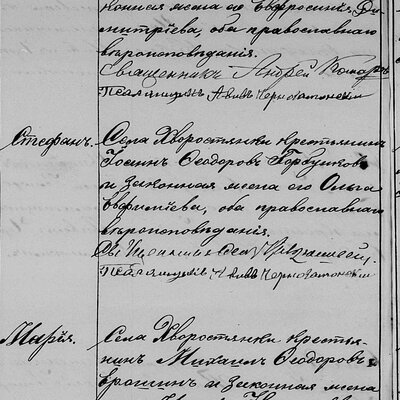 конная жена его Евфросинiя Ди-
митрiева, оба православнаго
вѣроисповѣданiя.
Священникъ Андрей
Псаломщикъ
Стефанъ.
Села Хворостянки крестьянинъ
Iоаннъ Ѳеодоровъ Горбунковъ
и законная жена его Ольга
Евфимiева, оба православнаго
вѣроисповѣданiя.
Псаломщикъ
Марiя.
Села Хворостянки крестья-
нинъ Михаилъ Ѳеодоровъ
Ерошинъ и законная жена